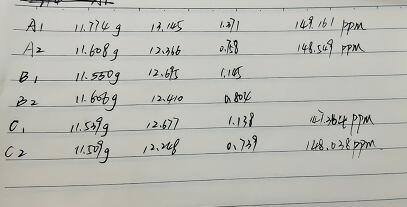 A1 11.774g 13.145 1.371 149.161 ppm
A2 11.608g 12.366 0.758 148.549 ppm
B1 11.550g 12.695 1.145
B2 11.606g 12.410 0.804
C1 11.539g 12.677 1.138 147.364 ppm
C2 11.509g 12.248 0.739 148.038 ppm